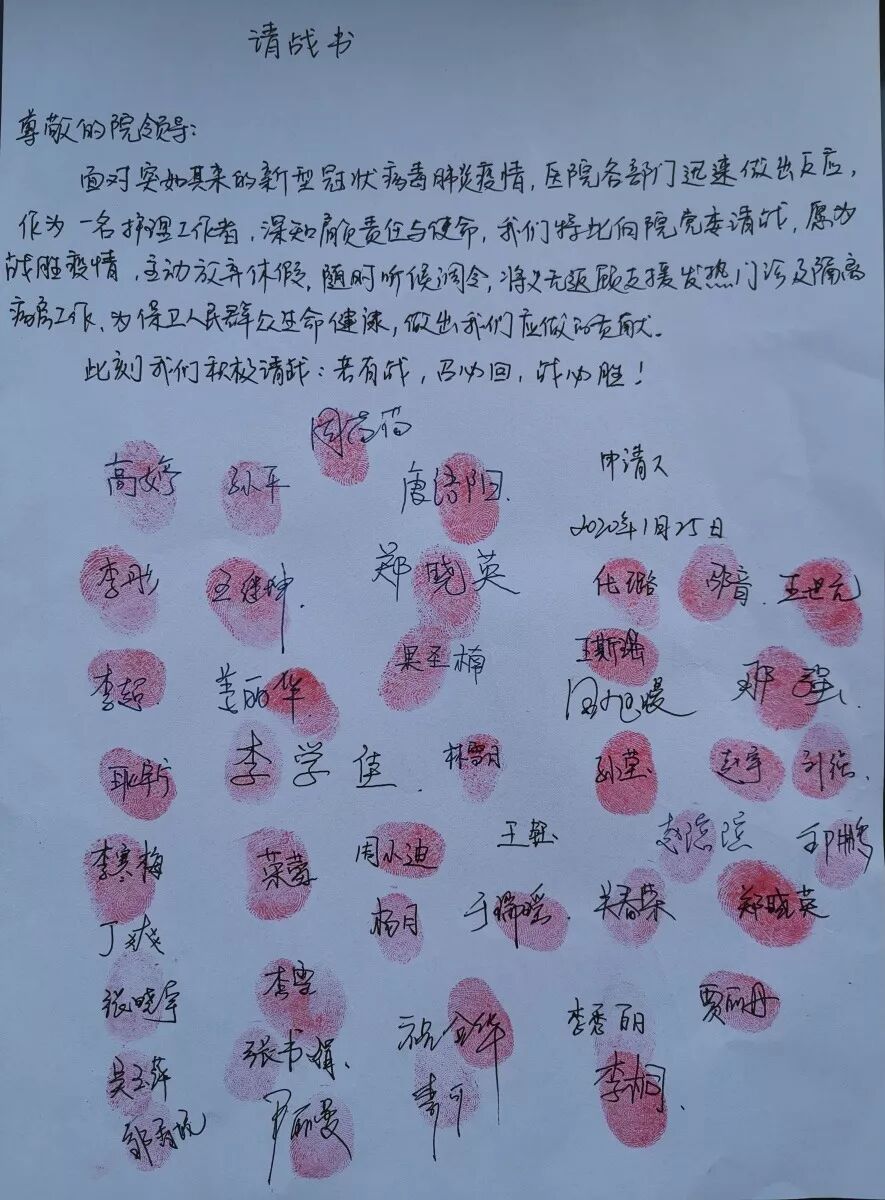 请战书
尊敬的院领导:
面对突如其来的新型冠状病毒肺炎疫情,医院各部门迅速做出反应,
作为一名护理工作者,深知肩负责任与使命,我们特此向院党委请战,愿为
战胜疫情,主动放弃休假,随时听候调令,将义无返顾支援发热门诊及隔离
病房工作、为保卫人民群众生命健康,做出我们应做的贡献。
此刻我们积极请战:若有战,召必回,战必胜!
高婷 孙平
申请人
2020年1月25日
李彤 王继坤. 郑晓英 王世元
李超 姜丽华 王斯瑶
李学佳 林雪月 孙莹. 赵宇
李寒梅 周小迪 王钰
丁爽 杨月 于瑞瑶. 关春荣 郑晓英
张晓宇 李雪 李秀丽 贾丽丹
吴玉萍 张书娟、 李桐.